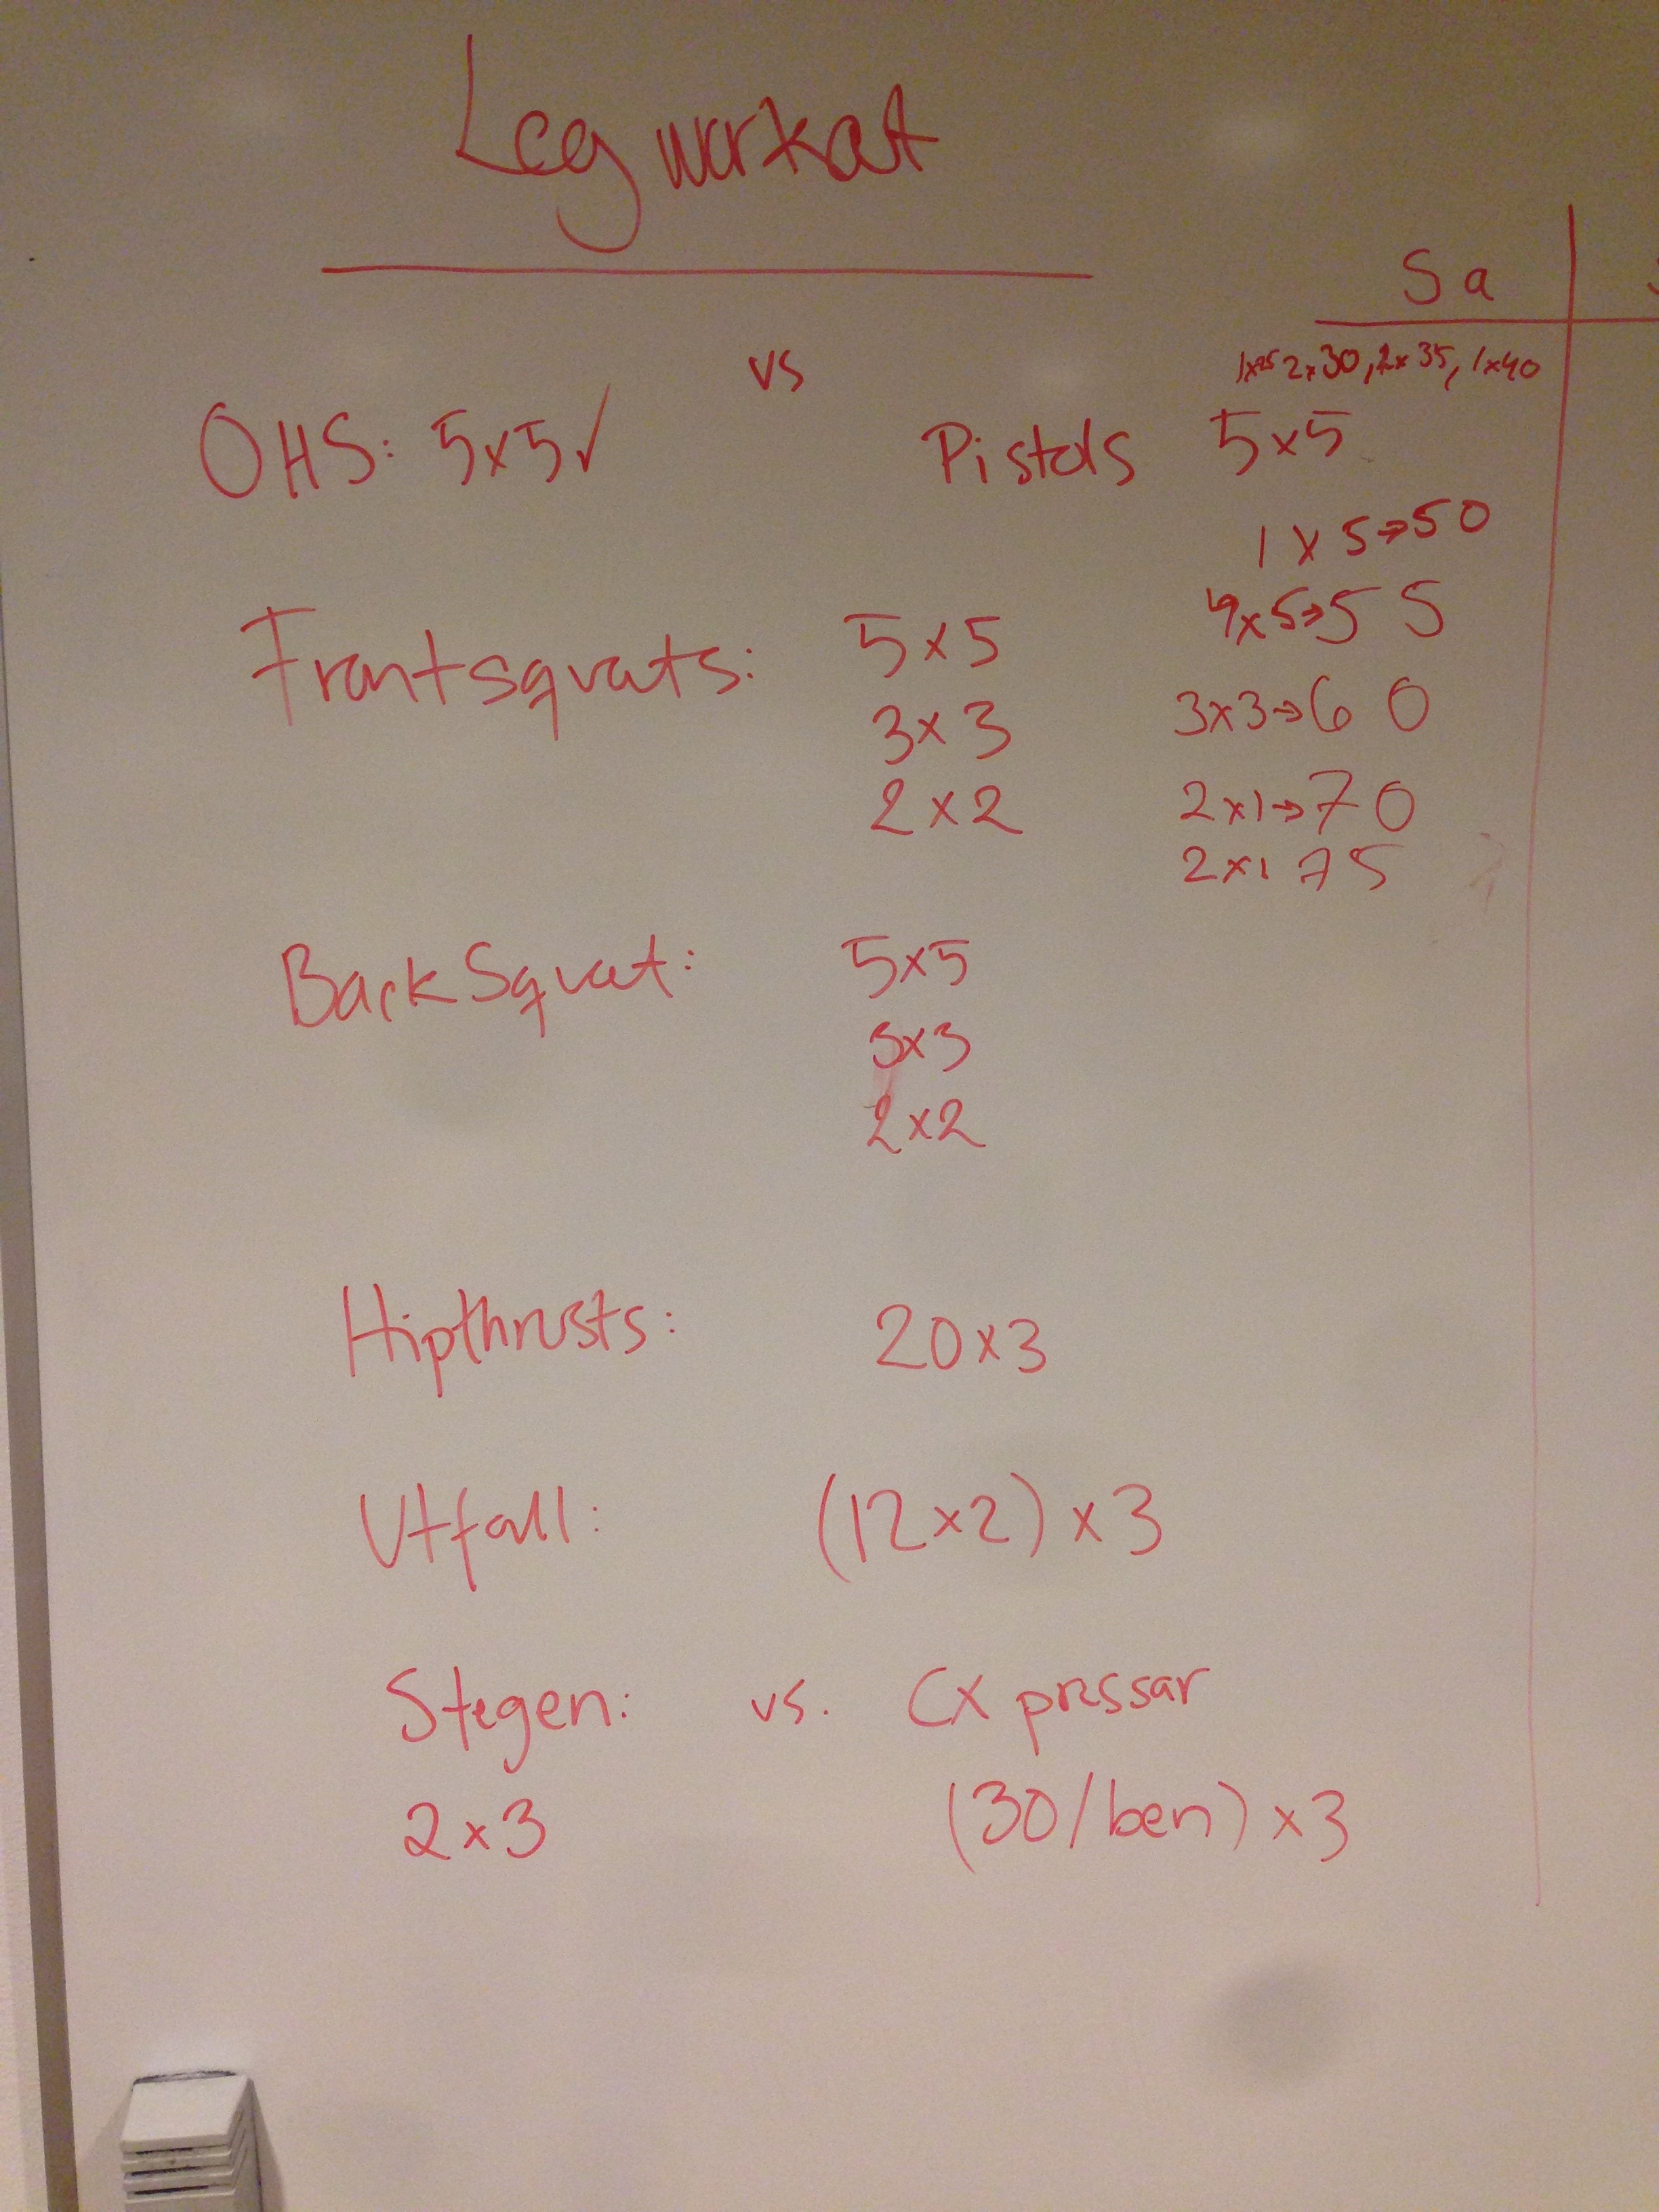 Leg workout
Sa
vs
1x25 2x30, 2x35, 1x40
OHS: 5x5✓ Pistols 5x5
1 x 5→50
Frontsquats: 5x5 4x5→55
3x3 3x3→60
2x2 2x1→70
2x1 75
Back Squat: 5x5
3x3
2x2
Hipthrusts: 20x3
Utfall: (12x2) x3
Stegen: vs. CX pressar
2x3 (30/ben) x3